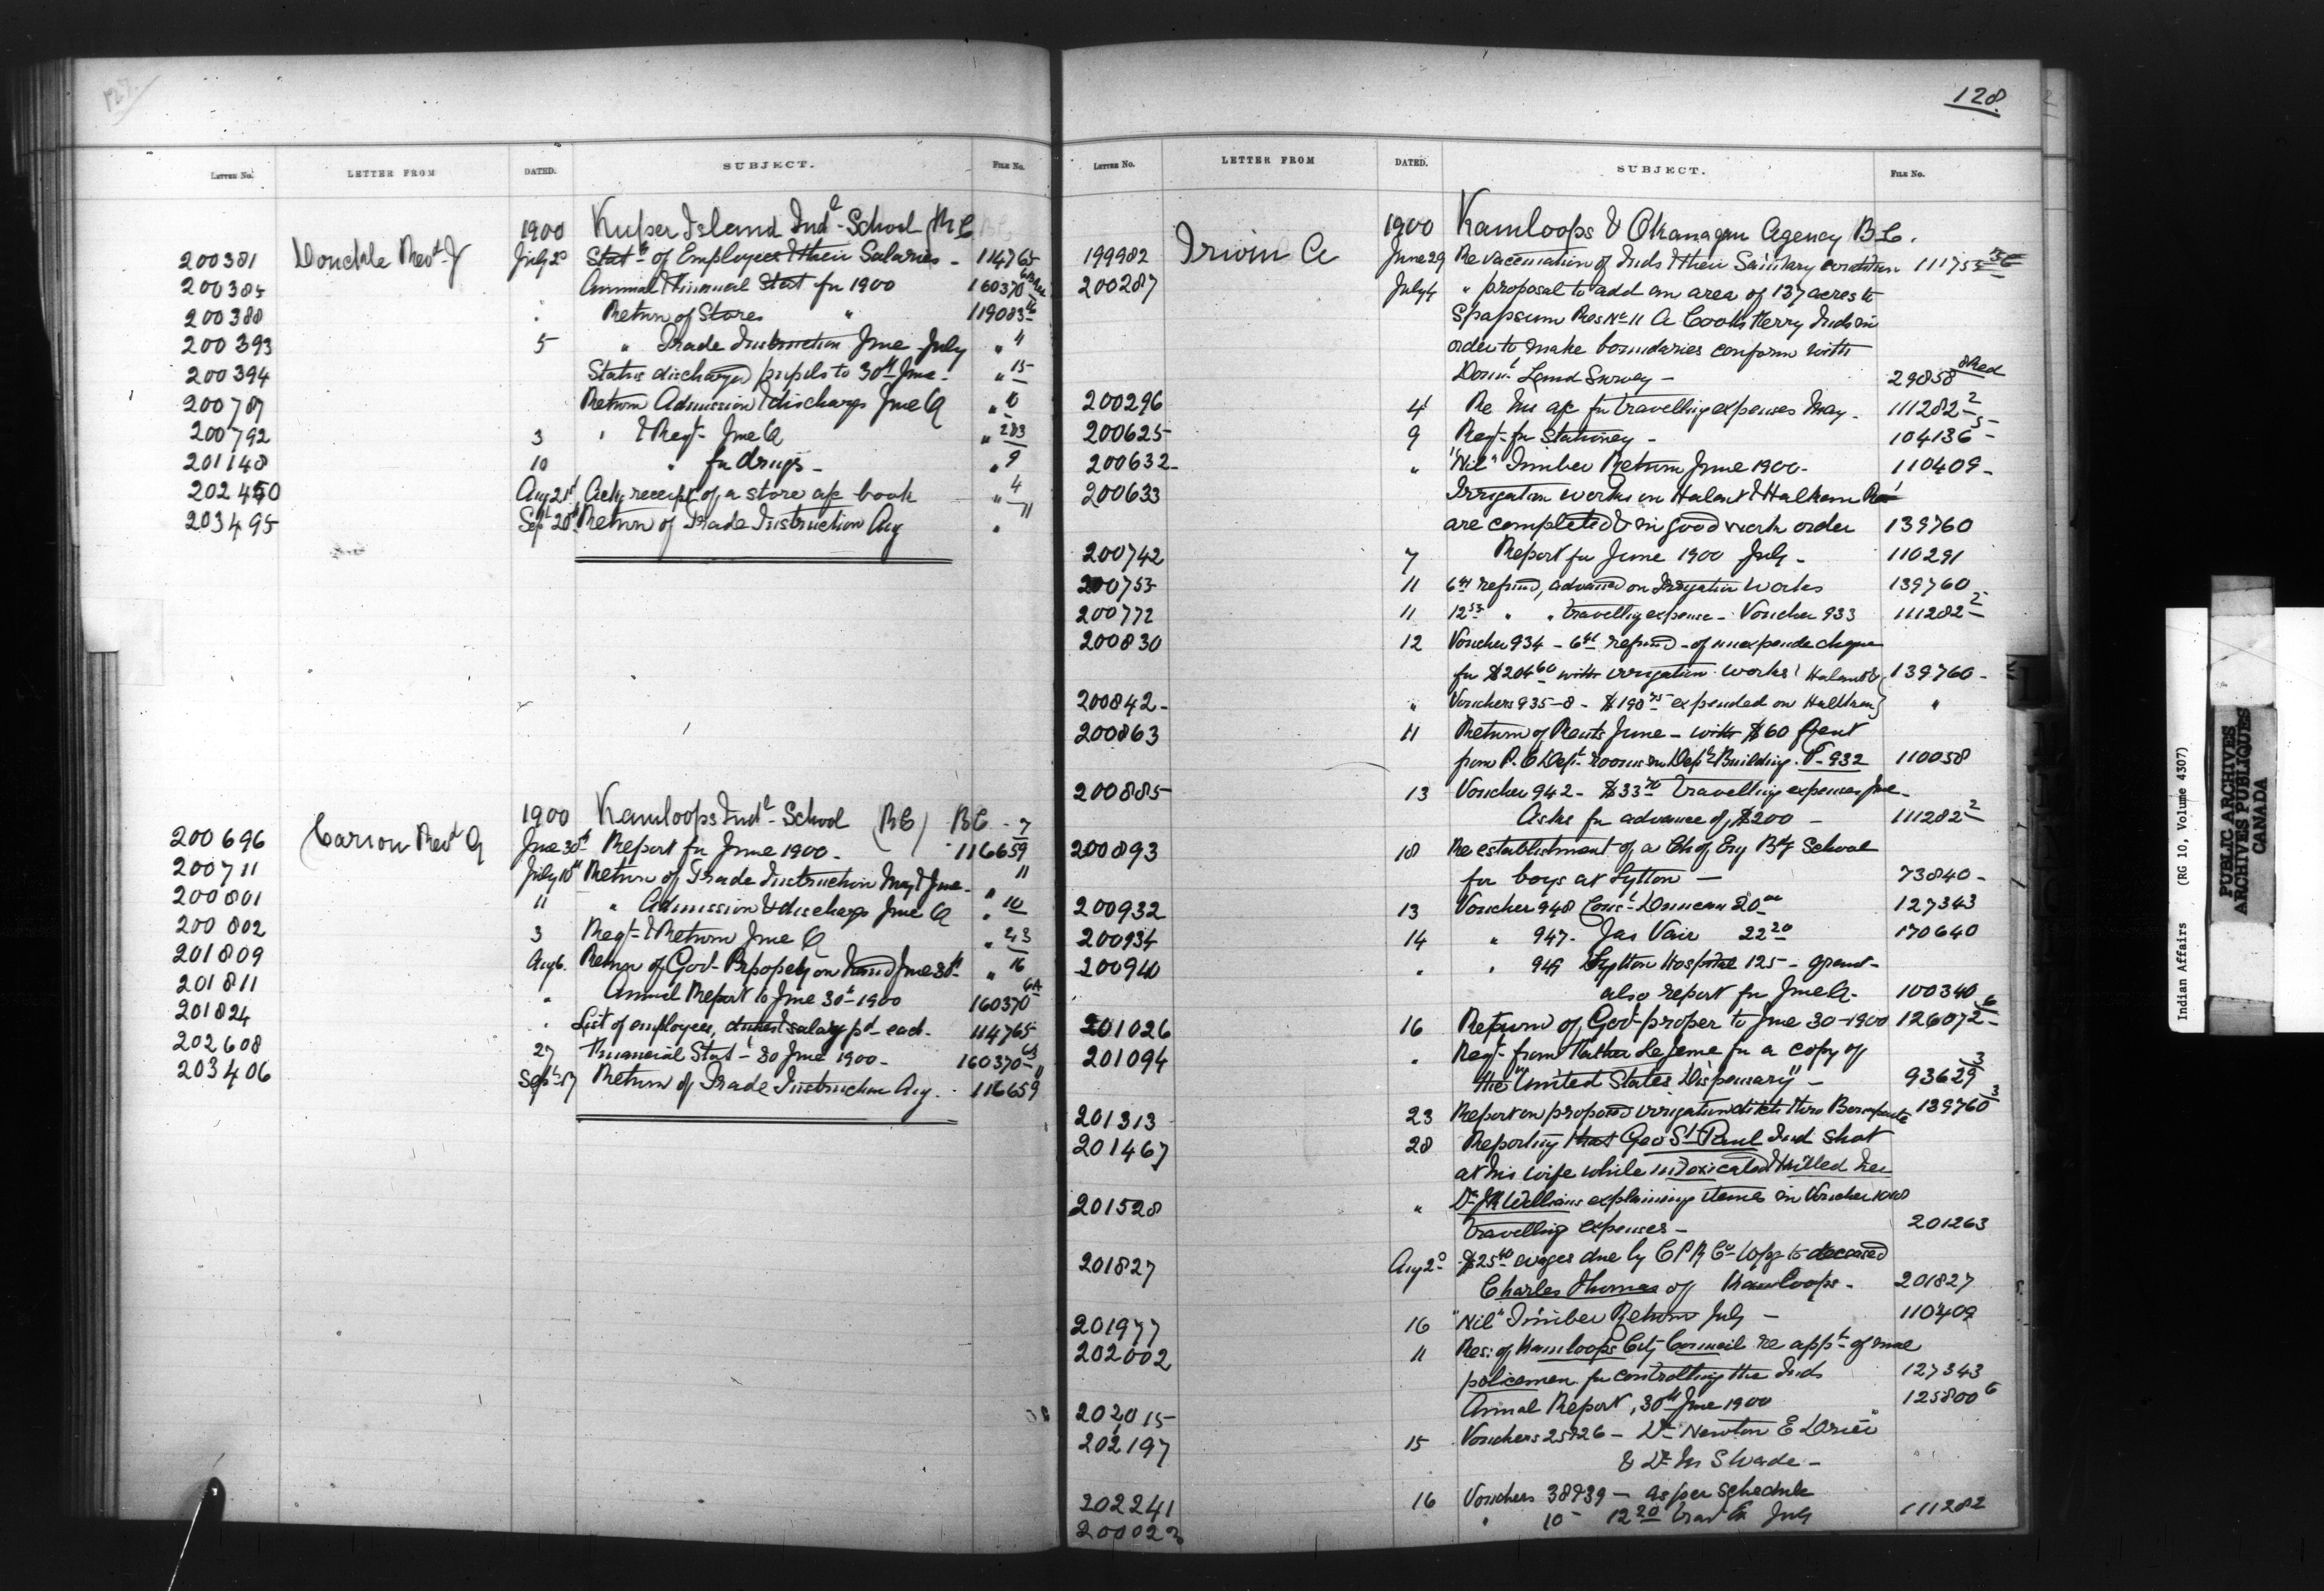 127.
LETTER NO. LETTER FROM DATED. SUBJECT. FILE NO.
1900 Kuper Island Indl School (R.C.
200381 Donckele Revd J July 2d Statt of Employees & their Salaries - 114765
200385 Annual Financial Stat for 1900 160370
200388 " Return of Stores " 119083
200393 5 " Trade Instruction June July " 4
200394 Status discharged pupils to 30th June - " 15
200787 Return Admission & discharge June Q " 10
200792 3 " & Reqt June Q "
201148 10 " for drugs - " 9
202450 Aug 21st Ackg receipt of a store a/c book " 4
203495 Sept 20th Return of Trade Instruction Aug " 11
1900 Kamloops Indl School (RC) BC - 7
200696 Carion Revd A June 30th Report for June 1900 - 116659
200711 July 10th Return of Trade Instruction May & June - " 11
200801 11 " Admission & discharge June Q " 10
200802 3 Reqt & Return June Q "
201809 Aug 6. Return of Govt Propesty on hand June 30th " 16
201811 " Annual Report to June 30th 1900 160370 6A
201824 " List of employees, duties & salary pd each. 114765
202608 27 Financial Statt 30 June 1900 - 160370
203406 Sept 17 Return of Trade Instruction Aug. 116659 11
128.
LETTER NO. LETTER FROM DATED. SUBJECT. FILE NO.
1900 Kamloops & Okanagan Agency B.C.
199982 Irwin A June 29 Re vaccination of Inds & their Sanitary condition 111755
200287 July 4 " proposal to add an area of 137 acres to
Spapsum Res No 11 A Cooks Ferry Inds in
order to make boundaries conform with
Domn Land Survey - 29858
200296 4 Re his a/c for travelling expenses May. 111282 2
200625 9 Reqt for Stationey - 104136 5
200632 - " "Nil" Timber Return June 1900 - 110409 -
200633 Irrigation works on Halaut & Halkam Res
are completed & in good work order 139760
200742 7 Report for June 1900 July - 110291
200753 11 6.41 refund, advanced on Irrigation works 139760
200772 11 12.53 " " travelling expense - Voucher 933 111282 2
200830 12 Voucher 934 - 6.41 refund - of unexpende cheque
for $204.60 with irrigation works Halaut & 139760 -
200842 - " Vouchers 935-8 - $198.75 expended on Halkam "
200863 11 Return of Rents June - with $60 rent
from P.O Dept rooms in Deptl Building. V-932 110058
200885 13 Voucher 942 - $33.70 travelling expenses June -
Asks for advance of $200 - 111282 2
200893 18 Re establishment of a Ch of Eng Bdg School
for boys at Lytton - 73840 -
200932 13 Voucher 948 Const Duncan 20.00 127343
200934 14 " 947 - Jas Vair 22.20 170640
200940 " " 949 Lytton Hospital 125 - grant -
also report for June Q. 100340
201026 16 Return of Govt proper to June 30 - 1900 126072 6
201094 " Reqt from Father LeJeune for a copy of
the "United States Dispensary" - 93629 3
201313 23 Report on proposed irrigation ditch thro Bonaparte 139760 3
201467 28 Reporting that Geo St Paul Ind shot
at his wife while intoxicated & killed her
201528 " Dr JH Williams explaining items in Voucher 1048
travelling expenses - 201263
201827 Aug 2d $25.40 wages due by C P R Co Wpg to deceased
Charles Thomas of Kamloops - 201827
201977 16 "Nil" Timber Return July - 110409
202002 11 Res: of Kamloops City Council re appt of male
policemen for controlling the Inds 127343
202015 Annual Report, 30th June 1900 125800 6
202197 15 Vouchers 25 & 26 - Dr Newton E
& Dr M S Wade -
202241 16 Vouchers 38 & 39 - as per schedule
" 10 - 12.20 trav Ex July 111282
Indian Affairs (RG 10, Volume 4307)
PUBLIC ARCHIVES
ARCHIVES PUBLIQUES
CANADA